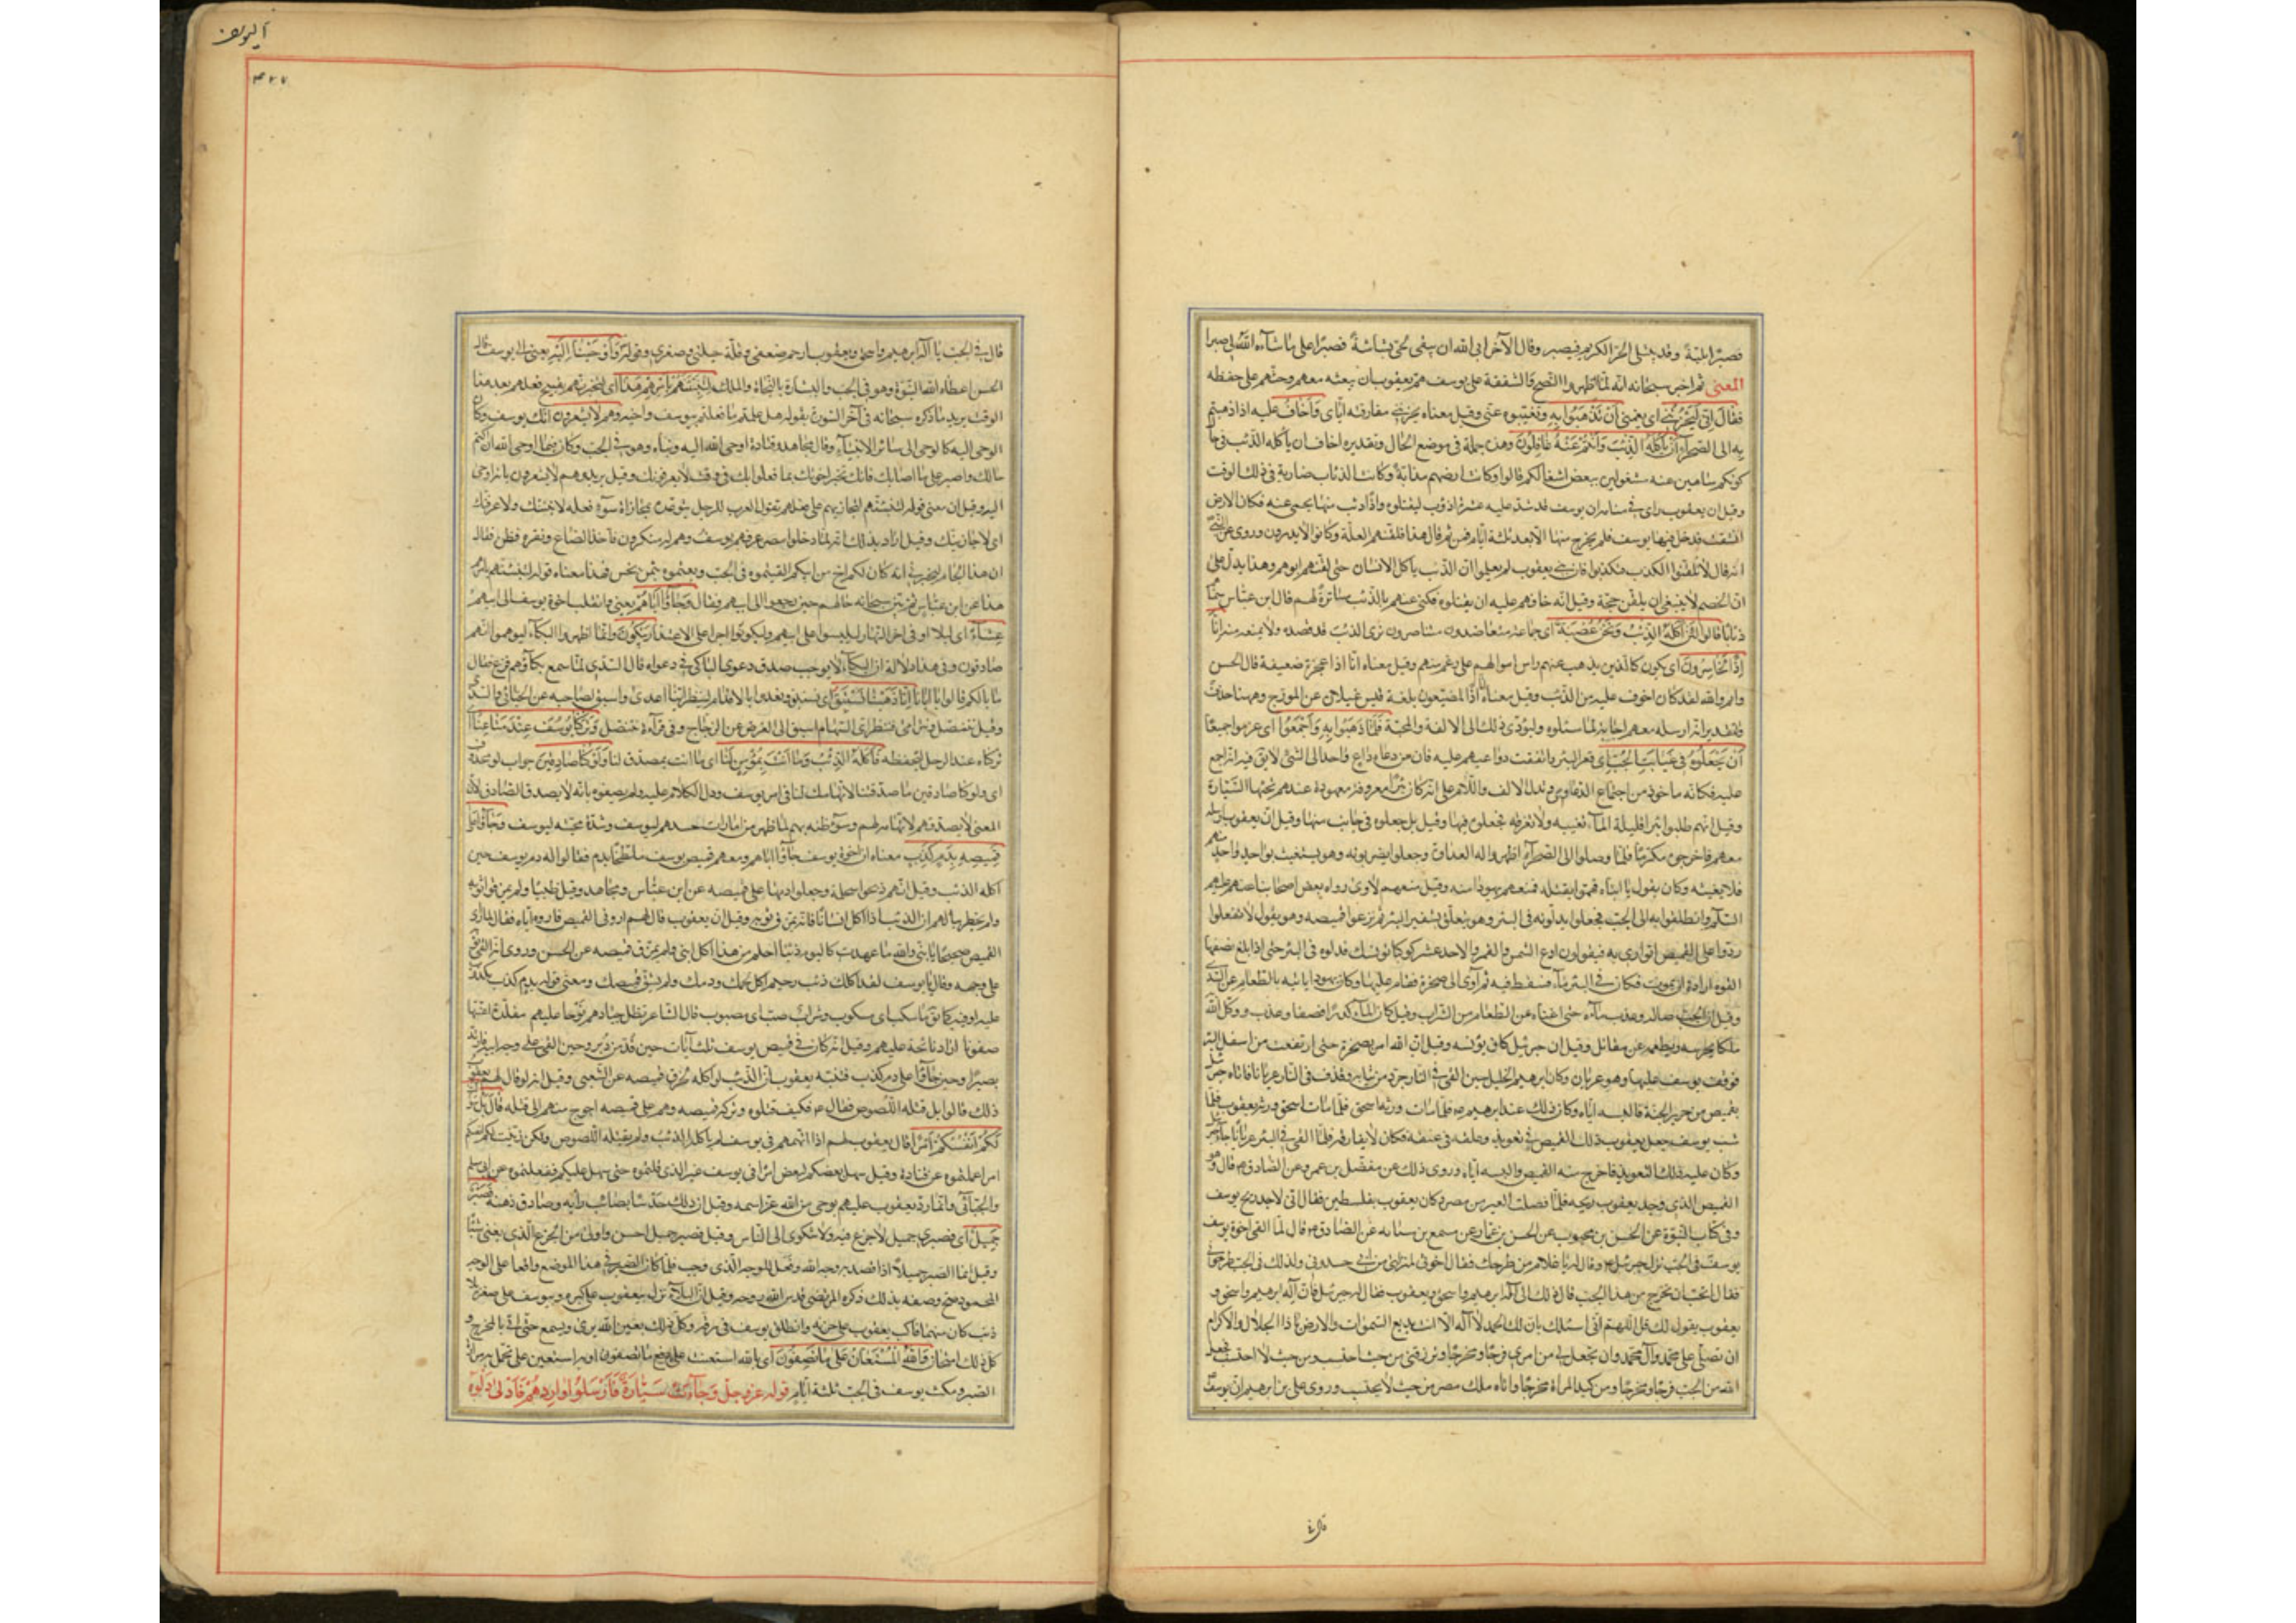 فصبرا بلية وقد يبتلى الحر الكريم فيصبر وقال الآخر ابى الله ان يبقى لحى بشاشة فصبرا على ما شآءه الله لى صبرا
المعنى ثم اخبر سبحانه انه لمّا اظهروا النصح والشفقة على يوسف همّ يعقوب ان يبعثه معهم وحثهم على حفظه
فقال اِنّى لَيَحْزُنُنى اى يغمنى اَنْ تَذْهَبُوا بِهِ وتغيبوه عنّى وقيل معناه يحزننى مفارقته ايّاى وَاَخافُ عليه اذا ذهبتم
به الى الصحرآء اَنْ يَأكُلَهُ الذِّئبُ وَاَنْتُمْ عَنْهُ غافِلُونَ وهذه جملة فى موضع الحال وتقديره اخاف ان يأكله الذئب فى حال
كونكم ساهين عنه مشغولين ببعض اشغالكم قالوا وكانت ارضهم مذأبة وكانت الذئاب ضارية فى ذلك الوقت
وقيل ان يعقوب راى فى منامه ان يوسف قد شدّ عليه عشرة اذؤب ليقتلوه واذا ذئب منها يحمى عنه فكان الارض
انشقت فدخل فيها يوسف فلم يخرج منها الا بعد ثلثة ايّام فمن ثم قال هذا فلقنهم العلّة وكانوا لا يدرون وروى عن النبى
انه قال لا تلقنوا الكذب فتكذبوا فان بنى يعقوب لم يعلموا ان الذئب ياكل الانسان حتى لقنهم ابوهم وهذا يدل على
ان الخصم لا ينبغى ان يلقن حجة وقيل انه خافهم عليه ان يقتلوه فكنى عنهم بالذئب مساترة لهم قال ابن عباس سمّاهم
ذئابا قالوا لَئِنْ اَكَلَهُ الذِّئْبُ وَنَحْنُ عُصْبَةٌ اى جماعة متعاضدون متناصرون نرى الذئب قد قصده ولا نمنعه منه اِنّا
اِذًا لَخاسِرُونَ اى نكون كالّذين يذهب عنهم راس اموالهم على رغم منهم وقيل معناه انّا اذا عجزة ضعيفة قال الحسن
وايم والله لقد كان اخوف عليه من الذئب وقيل معناه انّا اذًا لمضيّعون بلغة قيس غيلان عن المورّج وههنا حذف
وتقديره انه ارسله معهم اجابة لما سئلوه وليؤدّى ذلك الى الالفة والمحبّة فَلَمّا ذَهَبُوا بِهِ وَاَجْمَعُوا اى عزموا جميعًا
اَنْ يَجْعَلُوهُ فى غَيابَتِ الجُبِّ اى قعر البئر واتفقت دواعيهم عليه فان من دعاه داع واحد الى الشىء لا يقال فيه انه اجمع
عليه فكانه ماخوذ من اجتماع الدواعى ويدل الالف واللام على انه كان بئرا معروفة معهودة عندهم تجئها السيّارة
وقيل انهم طلبوا بئرا قليلة المآء تغيبه ولا تغرقه فجعلوه فيها وقيل بل جعلوه فى جانب منها وقيل ان يعقوب ارسله
معهم فاخرجوه مكرما فلمّا وصلوا الى الصحرآء اظهروا له العداوة وجعلوا يضربونه وهو يستغيث بواحد واحد منهم
فلا يغيثه وكان يقول يا ابتاه فهمّوا بقتله فمنعهم يهوذا منه وقيل منعهم لاوى رواه بعض اصحابنا عنهم عليهم
السّلم وانطلقوا به الى الجبّ فجعلوا يدلّونه فى البئر وهو يتعلق بشفير البئر ثم نزعوا قميصه وهو يقول لا تفعلوا
ردّوا على القميص اتوارى به فيقولون ادع الشمس والقمر والاحد عشر كوكبا تؤنسك فدلوه فى البئر حتى اذا بلغ نصفها
القوه ارادة ان يموت فكان فى البئر مآء فسقط فيه ثم آوى الى صخرة فقام عليها وكان يهوذا يأتيه بالطعام عن السّدى
وقيل انّ الجبّ ضاء له وعذب مآءه حتى اغناه عن الطّعام من الشّراب وقيل كان المآء كدرا فصفا وعذب ووكّل الله
ملكا يحرسه ويطعمه عن مقاتل وقيل ان جبرئيل كان يؤنسه وقيل ان الله امر بصخرة حتى ارتفعت من اسفل البئر
فوقف يوسف عليها وهو عريان وكان ابرهيم الخليل حين القى فى النار جرّد من ثيابه وقذف فى النار عريانا فاتاه جبرئيل
بقميص من حرير الجنة فالبسه ايّاه وكان ذلك عند ابرهيم ع فلمّا مات ورثه اسحق فلمّا مات اسحق ورثه يعقوب فلمّا
شبّ يوسف جعل يعقوب ذلك القميص فى تعويذ وعلقه فى عنقه فكان لا يفارقه فلمّا القى فى البئر عريانا جآءه جبرئيل
وكان عليه ذلك التعويذ فاخرج منه القميص والبسه ايّاه وروى ذلك عن مفضّل بن عمر وعن الصّادق ع قال وهو
القميص الذى وجد يعقوب ريحه فلمّا فصلت العير من مصر وكان يعقوب بفلسطين فقال انى لاجد ريح يوسف
وفى كتاب النبوّة عن الحسن بن محبوب عن الحسن بن عمّارة عن مسمع بن سيّار عن الصّادق ع قال لما القى اخوة يوسف
يوسف فى الجبّ نزل جبرئيل ع وقال له يا غلام من طرحك فقال اخوتى لمنزلتى من ابى حسدونى ولذلك فى الجبّ طرحونى
فقال اتحبّ ان تخرج من هذا الجبّ قال ذلك الى آله ابرهيم واسحق ويعقوب فقال له جبرئيل فانّ آله ابرهيم واسحق و
يعقوب يقول لك قل اللّهمّ انى اسئلك بان لك الحمد لا آله الا انت بديع السّموات والارض يا ذا الجلال والاكرام
ان تصلّى على محمّد وآل محمّد وان تجعل لى من امرى فرجًا ومخرجًا وترزقنى من حيث احتسب ومن حيث لا احتسب فجعل
الله من الجبّ فرجًا ومخرجًا ومن كيد المرأة مخرجًا واتاه ملك مصر من حيث لا يحتسب وروى على بن ابرهيم ان يوسف
قال فى
آ يوسف
قال فى الجبّ يا آله ابرهيم واسحق ويعقوب ارحم ضعفى وقلّة حيلتى وصغرى وقوله وَاَوْحَيْنا اِلَيْهِ يعنى الى يوسف قال
الحسن اعطاه الله النّبوّة وهو فى الجبّ والبشارة بالنّجاة والملك لَتُنَبِّئَنَّهُمْ بِاَمْرِهِمْ هذا اى لتخبرنّهم بقبيح فعلهم بعد هذا
الوقت يريد ما ذكره سبحانه فى آخر السّورة بقوله هل علمتم ما فعلتم بيوسف واخيه وَهُمْ لا يَشْعُرُونَ انّك يوسف وكان
الوحى اليه كالوحى الى سائر الانبيآء وقال مجاهد وقتادة اوحى الله اليه ونبّاه وهو فى الجبّ وكان فيما اوحى الله ان اكتم
حالك واصبر على ما اصابك فانّك تخبر اخوتك بما فعلوا بك فى وقت لا يعرفونك وقيل يريد وهم لا يشعرون بانه اوحى
اليه وقيل ان معنى قوله لتنبئنهم لتجازينهم على فعلهم تقول العرب للرجل يتوعده بمجازاة سوء فعله لانبئنّك ولاعرفنّك
اى لاجازينّك وقيل اراد بذلك انهم لمّا دخلوا مصر عرفهم يوسف وهم له منكرون فاخذ الصّاع ونقره فطنّ فقال
ان هذا الجام ليخبرنى انه كان لكم اخ من ابيكم القيتموه فى الجبّ وبعتموه بثمن بخس فهذا معناه قوله لتنبئنّهم بامرهم
هذا عن ابن عبّاس ثم بيّن سبحانه حالهم حين رجعوا الى ابيهم فقال وَجاؤُا اَباهُمْ يعنى وانقلب اخوة يوسف الى ابيهم
عِشآءً اى ليلا او فى اخر النّهار ليلبسوا على ابيهم وليكونوا اجرأ على الاعتذار يَبْكُونَ وانّما اظهروا البكآء ليوهموا انّهم
صادقون وفى هذا دلالة ان البكآء لا يوجب صدق دعوى الباكى فى دعواه قال السّدى لمّا سمع بكآءهم فزع فقال
ما بالكم قالُوا يا اَبانا اِنّا ذَهَبْنا نَسْتَبِقُ اى نستبق ونعدوا بالاقدام لننظر ايّنا اعدى واسبق لصاحبه عن الجبّائى والسّدى
وقيل ننتضل ونترامى فننظر اى السّهام اسبق الى الغرض عن الزجّاج وفى قرآءة ننتضل وَتَرَكْنا يُوسُفَ عِنْدَ مَتاعِنا اى
تركناه عند الرحل ليحفظه فَاَكَلَهُ الذِّئْبُ وَما اَنْتَ بِمُؤْمِنٍ لَنا اى ما انت بمصدّق لنا وَلَوْ كُنّا صادِقينَ جواب لو محذوف
اى ولو كنا صادقين ما صدّقتنا لاتّهامك لنا فى امر يوسف ودل الكلام عليه ولم يصفوه بانّه لا يصدق الصّادق لان
المعنى لا يصدقهم لاتّهامه لهم وسوء ظنه بهم لما ظهر من امارات حسدهم ليوسف وشدّة محبّته ليوسف وَجاؤُا عَلى
قَميصِهِ بِدَمٍ كَذِبٍ معناه ان اخوة يوسف جآؤا اباهم ومعهم قميص يوسف ملطخا بدم فقالوا له دم يوسف حين
اكله الذئب وقيل انّهم ذبحوا سخلة وجعلوا دمها على قميصه عن ابن عبّاس ومجاهد وقيل ظبيا ولم يمزقوا ثوبه
ولم يخطر ببالهم ان الذئب اذا اكل انسانا فانه يمزق ثوبه وقيل ان يعقوب قال لهم ارونى القميص فاروه ايّاه فقال لما راى
القميص صحيحا يا بنىّ والله ما عهدت كاليوم ذئبا احلم من هذا اكل ابنى ولم يمزق قميصه عن الحسن وروى انه القى
على وجهه وقال يا يوسف لقد اكلك ذئب رحيم اكل لحمك ودمك ولم يشق قميصك ومعنى قوله بدم كذب مكذوب
عليه او فيه كما يق ماء سكب اى مسكوب وشراب صبّ اى مصبوب قال الشاعر تظل جيادهم نَوْحا عليهم مقلّدة اعنّتها
صفونا اراد نائحة عليهم وقيل انه كان فى قميص يوسف ثلث آيات حين قدّ من دُبر وحين القى على وجه ابيه فارتد
بصيرا وحين جآؤا عليه بدم كذب فتنبّه يعقوب ان الذئب لو اكله لخرق قميصه عن الشعبى وقيل انه لمّا قال لهم يعقوب
ذلك قالوا بل قتله اللّصوص فقال ع فكيف قتلوه وتركوا قميصه وهم على قميصه احوج منهم الى قتله قالَ بَلْ سَوَّلَتْ
لَكُمْ اَنْفُسُكُمْ اَمْرًا قال يعقوب لهم اذا اتّهمهم فى يوسف لم ياكله الذئب ولم يقتله اللّصوص ولكن زيّنت لكم انفسكم
امرا عملتموه عن قتادة وقيل سهل بعضكم لبعض امرا فى يوسف غير الذى قلتموه حتى سهل عليكم ففعلتموه عن ابى مسلم
والجبّائى وانّما ردّ يعقوب عليهم بوحى من الله عزّ اسمه وقيل ان ذلك حدسًا بصائب رأيه وصادق ذهنه فَصَبْرٌ
جَميلٌ اى فصبرى جميل لا جزع فيه ولا شكوى الى النّاس وقيل فصبر جميل احسن واولى من الجزع الّذى لا يغنى شيئًا
وقيل انما الصبر جميلا اذا قصد به وجه الله وفعل للوجه الّذى وجب فلمّا كان الصبر فى هذا الموضع واقعا على الوجه
المحمود صحّ وصفه بذلك ذكره المرتضى قدّس الله روحه وقيل انّ البلآء نزل بيعقوب على كبره وبيوسف على صغره بلا
ذنب كان منهما فاكبّ يعقوب على حزنه وانطلق يوسف فى رقّه وكلّ ذلك بعين الله يرى ويسمع حتّى اتى بالمخرج و
كل ذلك امتحان وَاللهُ المُسْتَعانُ عَلى ما تَصِفُونَ اى بالله استعين على دفع ما تصفون او به استعين على تحمّل مرارة
الصبر ومكث يوسف فى الجبّ ثلثة ايّام قوله عزّ وجلّ وَجآءَتْ سَيّارَةٌ فَاَرْسَلُوا وارِدَهُمْ فَاَدْلى دَلْوَهُ